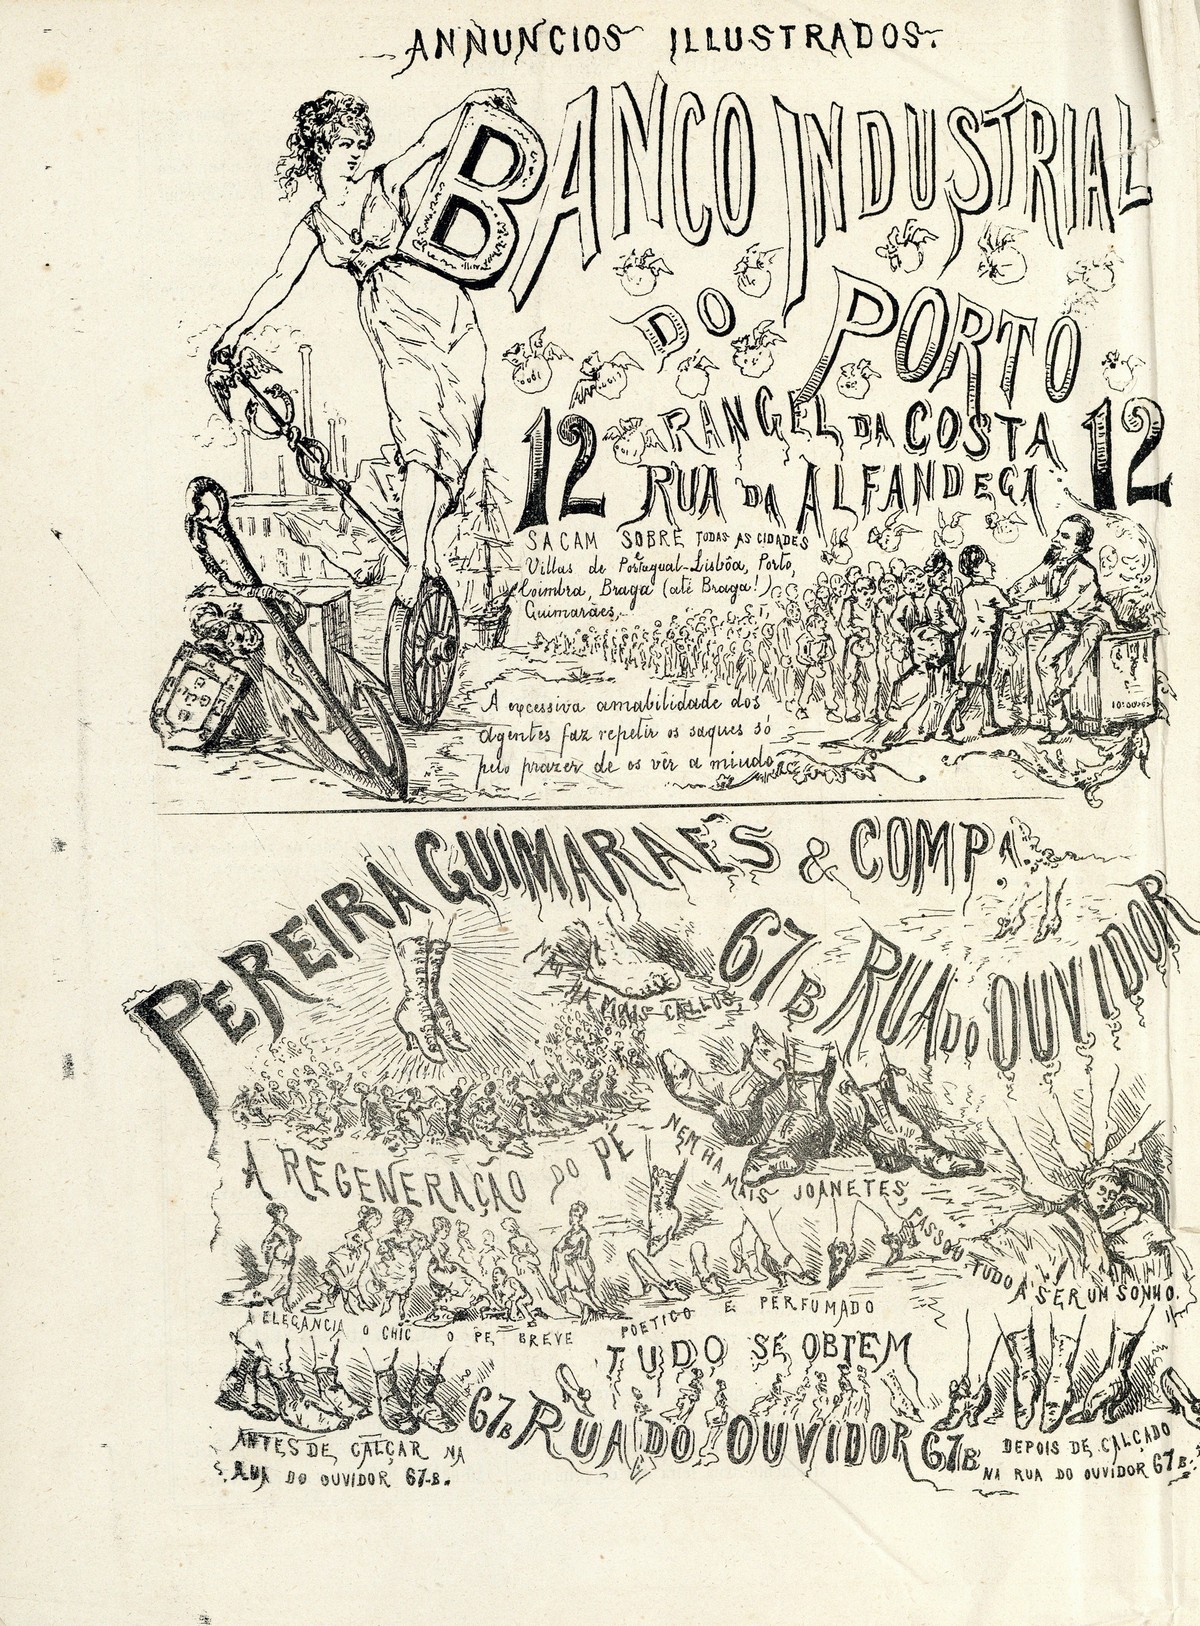 ANNUNCIOS ILLUSTRADOS.
BANCO INDUSTRIAL
DO PORTO
12 RANGEL DA COSTA 12
RUA DA ALFANDEGA
SACAM SOBRE TODAS AS CIDADES
Villas de Portugual-Lisbôa, Porto,
Coimbra, Braga (até Braga!)
Guimarães,
A excessiva amabilidade dos
agentes faz repetir os saques só
pelo prazer de os vêr a miudo
PEREIRA GUIMARAES & COMPA.
67B RUA DO OUVIDOR
MAIS CALLOS,
A REGENERAÇÃO DO PÉ
NEM HA MAIS JOANETES,
PASSOU TUDO A SER UM SONHO.
A ELEGANCIA O CHIC O PE BREVE
POETICO E PERFUMADO
TUDO SE OBTEM
67B RUA DO OUVIDOR 67B
ANTES DE CALÇAR NA
RUA DO OUVIDOR 67-B.
DEPOIS DE CALÇADO
NA RUA DO OUVIDOR 67B.